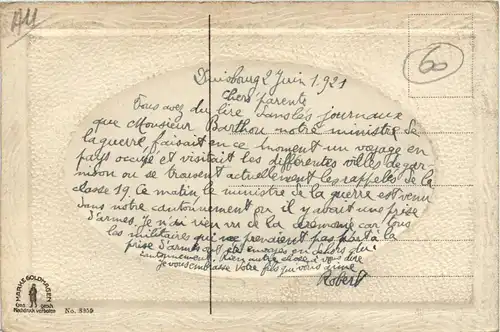 All
60
Duisbourg 2 Juin 1.921
Chers parents
Vous avez du lire dans les journaux
que Monsieur Barthou notre ministre de
la guerre, faisait en ce moment un voyage en
pays occupé et visitait les différentes villes de gar-
nison ou se trouvent actuellement les rappelés de la
classe 19. Ce matin le ministre de la guerre est venu
dans notre cantonnement ou il y avait une prise
d'armes. Je n'ai rien vu de la cérémonie car tous
les militaires qui ne prenaient pas part à la
prise d'armes ont été envoyés en dehors du
cantonnement. Rien autre chose à vous dire
Je vous embrasse Votre fils qui vous aime
Robert
MARKE GOLDHASEN
Ges. gesch.
Nachdruck verboten
No. 8359